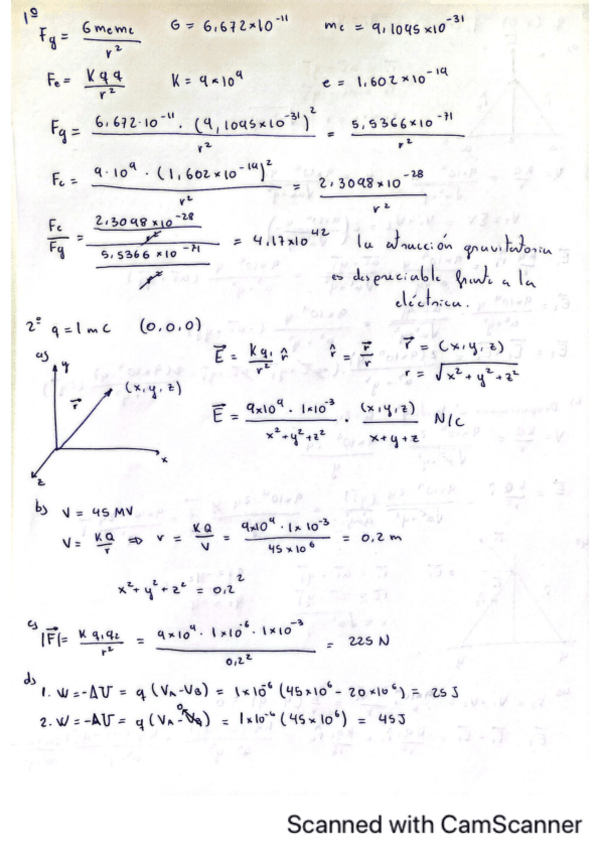 1º
Fg = G me me / r² G = 6,672×10⁻¹¹ me = 9,1095×10⁻³¹
Fe = K q q / r² K = 9×10⁹ e = 1,602×10⁻¹⁹
Fg = 6,672·10⁻¹¹ · (9,1095×10⁻³¹)² / r² = 5,5366×10⁻⁷¹ / r²
Fe = 9·10⁹ · (1,602×10⁻¹⁹)² / r² = 2,3098×10⁻²⁸ / r²
Fe / Fg = (2,3098×10⁻²⁸ / r²) / (5,5366×10⁻⁷¹ / r²) = 4,17×10⁴² la atracción gravitatoria
es despreciable frente a la
eléctrica.
2º q = 1 mC (0,0,0)
a) y (x,y,z) r⃗ x z
E⃗ = K q₁ / r² r̂ r̂ = r⃗ / r r⃗ = (x,y,z)
r = √x²+y²+z²
E⃗ = 9×10⁹ · 1×10⁻³ / x²+y²+z² · (x,y,z) / x+y+z N/C
b) V = 45 MV
V = KQ / r ⇒ r = KQ / V = 9×10⁹ · 1×10⁻³ / 45×10⁶ = 0,2 m
x²+y²+z² = 0,2²
c) |F⃗| = K q₁q₂ / r² = 9×10⁹ · 1×10⁻⁶ · 1×10⁻³ / 0,2² = 225 N
d)
1. W = -ΔU = q (VA-VB) = 1×10⁻⁶ (45×10⁶ - 20×10⁶) = 25 J
2. W = -ΔU = q (VA-VB) 0 = 1×10⁻⁶ (45×10⁶) = 45 J
Scanned with CamScanner